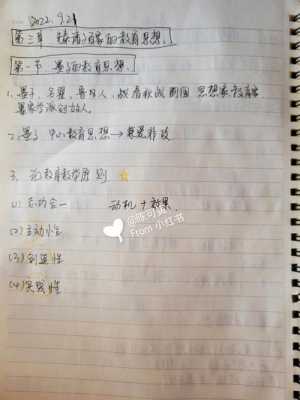 2022.9.21
第三章 先秦诸子百家的教育思想.
第一节 墨子的教育思想.
1.墨子,名翟,鲁国人,战国 思想家教育家
墨家学派创始人.
2.墨子 中心教育思想→
3. 论教育教学原则
(1) 志功合一 动机+效果
(2) 主动性
(3) 创造性
(4) 实践性
@陈可
From 小红书